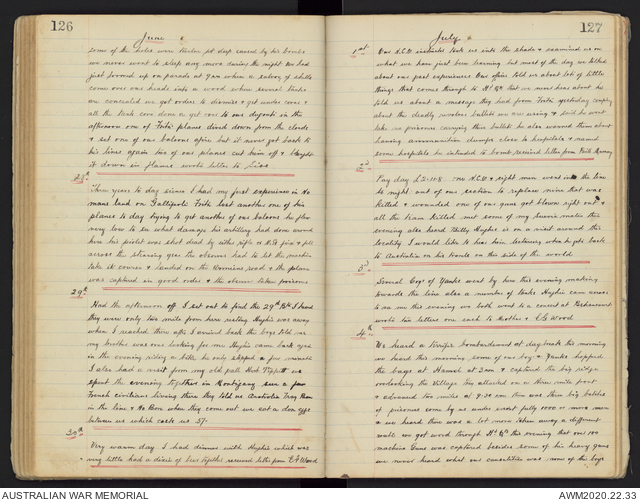 126
June
some of the holes were twelve ft deep caused by his bombs
we never went to sleep any more during the night We had
just formed up on parade at 9am when a salvoy of shells
come over our heads into a wood where several tanks
are concealed we got orders to dismiss & get under cover &
all the tank crew done a get to our dugouts in the
afternoon one of Fritz planes dived down from the clouds
& set one of our baloons afire but it never got back to
his lines again two of our planes cut him off & brought
it down in flames wrote letter to
28th
Three years to day since I had my first experience in No
mans land on Gallipoli Fritz lost another one of his
planes to day trying to get another of our baloons he flew
very low to see what damage his artillery had done
here his pilot was shot dead by either rifle or M.G. fire & fell
across the steering gear the observer had to let the machine
take it course & landed on the road & the plane
was captured in good order & the observer taken prisoner
29th
Had the afternoon off I set out to find the 29th Btn I heard
they were only two mile from here resting Hughie was away
when I reached there after I arrived back the boys told me
my brother was over looking for me Hughie came back again
in the evening riding a bike he only stopped a few minutes
I also had a visit from my old pall Herb Tippett we
spent the evening together in Montigny saw a few
French civilians living there they told us Australia Tray Bon
in the line & No Bon when they come out we eat a doz eggs
between us which costs us 5/-
30th
Very warm day I had dinner with Hughie which was
very little had a dixie of beer together received letter from E A Wood
127
July
1st
Our N.C.O. instructor took us into the shade & examined us on
what we have just been learning but most of the day we talked
about our past experiences Our officer told us about lot of little
things that comes through to Hd Qts that we never hear about he
told us about a message they had from Fritz yesterday
about the deadly revolver bullets we are using & said he wont
take us prisoners carrying these bullets he also warned them about
having ammunition dumps close to hospitals & named
some hospitals he intended to bomb received letter from Murray
2nd
Pay day one N.C.O. & eight men went into the line
to night out of our section to replace nine that was
killed & wounded one of our guns got blown right out &
all the team killed met some of my mates this
evening also heard Billy Hughes is on a visit around this
locality I would like to hear him lecturing when he gets back
to Australia on his travels on this side of the world
3rd
Several Coys of Yanks went by here this evening making
towards the line also a number of tanks Hughie came across
to see me this evening we both went to a consert at
wrote two letters one each to Mother & E A Wood
4th
We heard a terrific bombardment at daybreak this morning
we heard this morning some of our boys & Yanks hopped
the bags at Hamel at 3am & captured the big ridge
overlooking the village they attacked on a three mile front
& advanced two miles at 9-30 am there was three big batches
of prisoners come by us under escort fully 1000 or more men
& we heard there was a lot more taken away a different
route we got word through Hd Qts this evening that over 100
machine Guns was captured besides some of his heavy guns
we never heard what our casualties was some of the boys
AUSTRALIAN WAR MEMORIAL
AWM2020.22.33